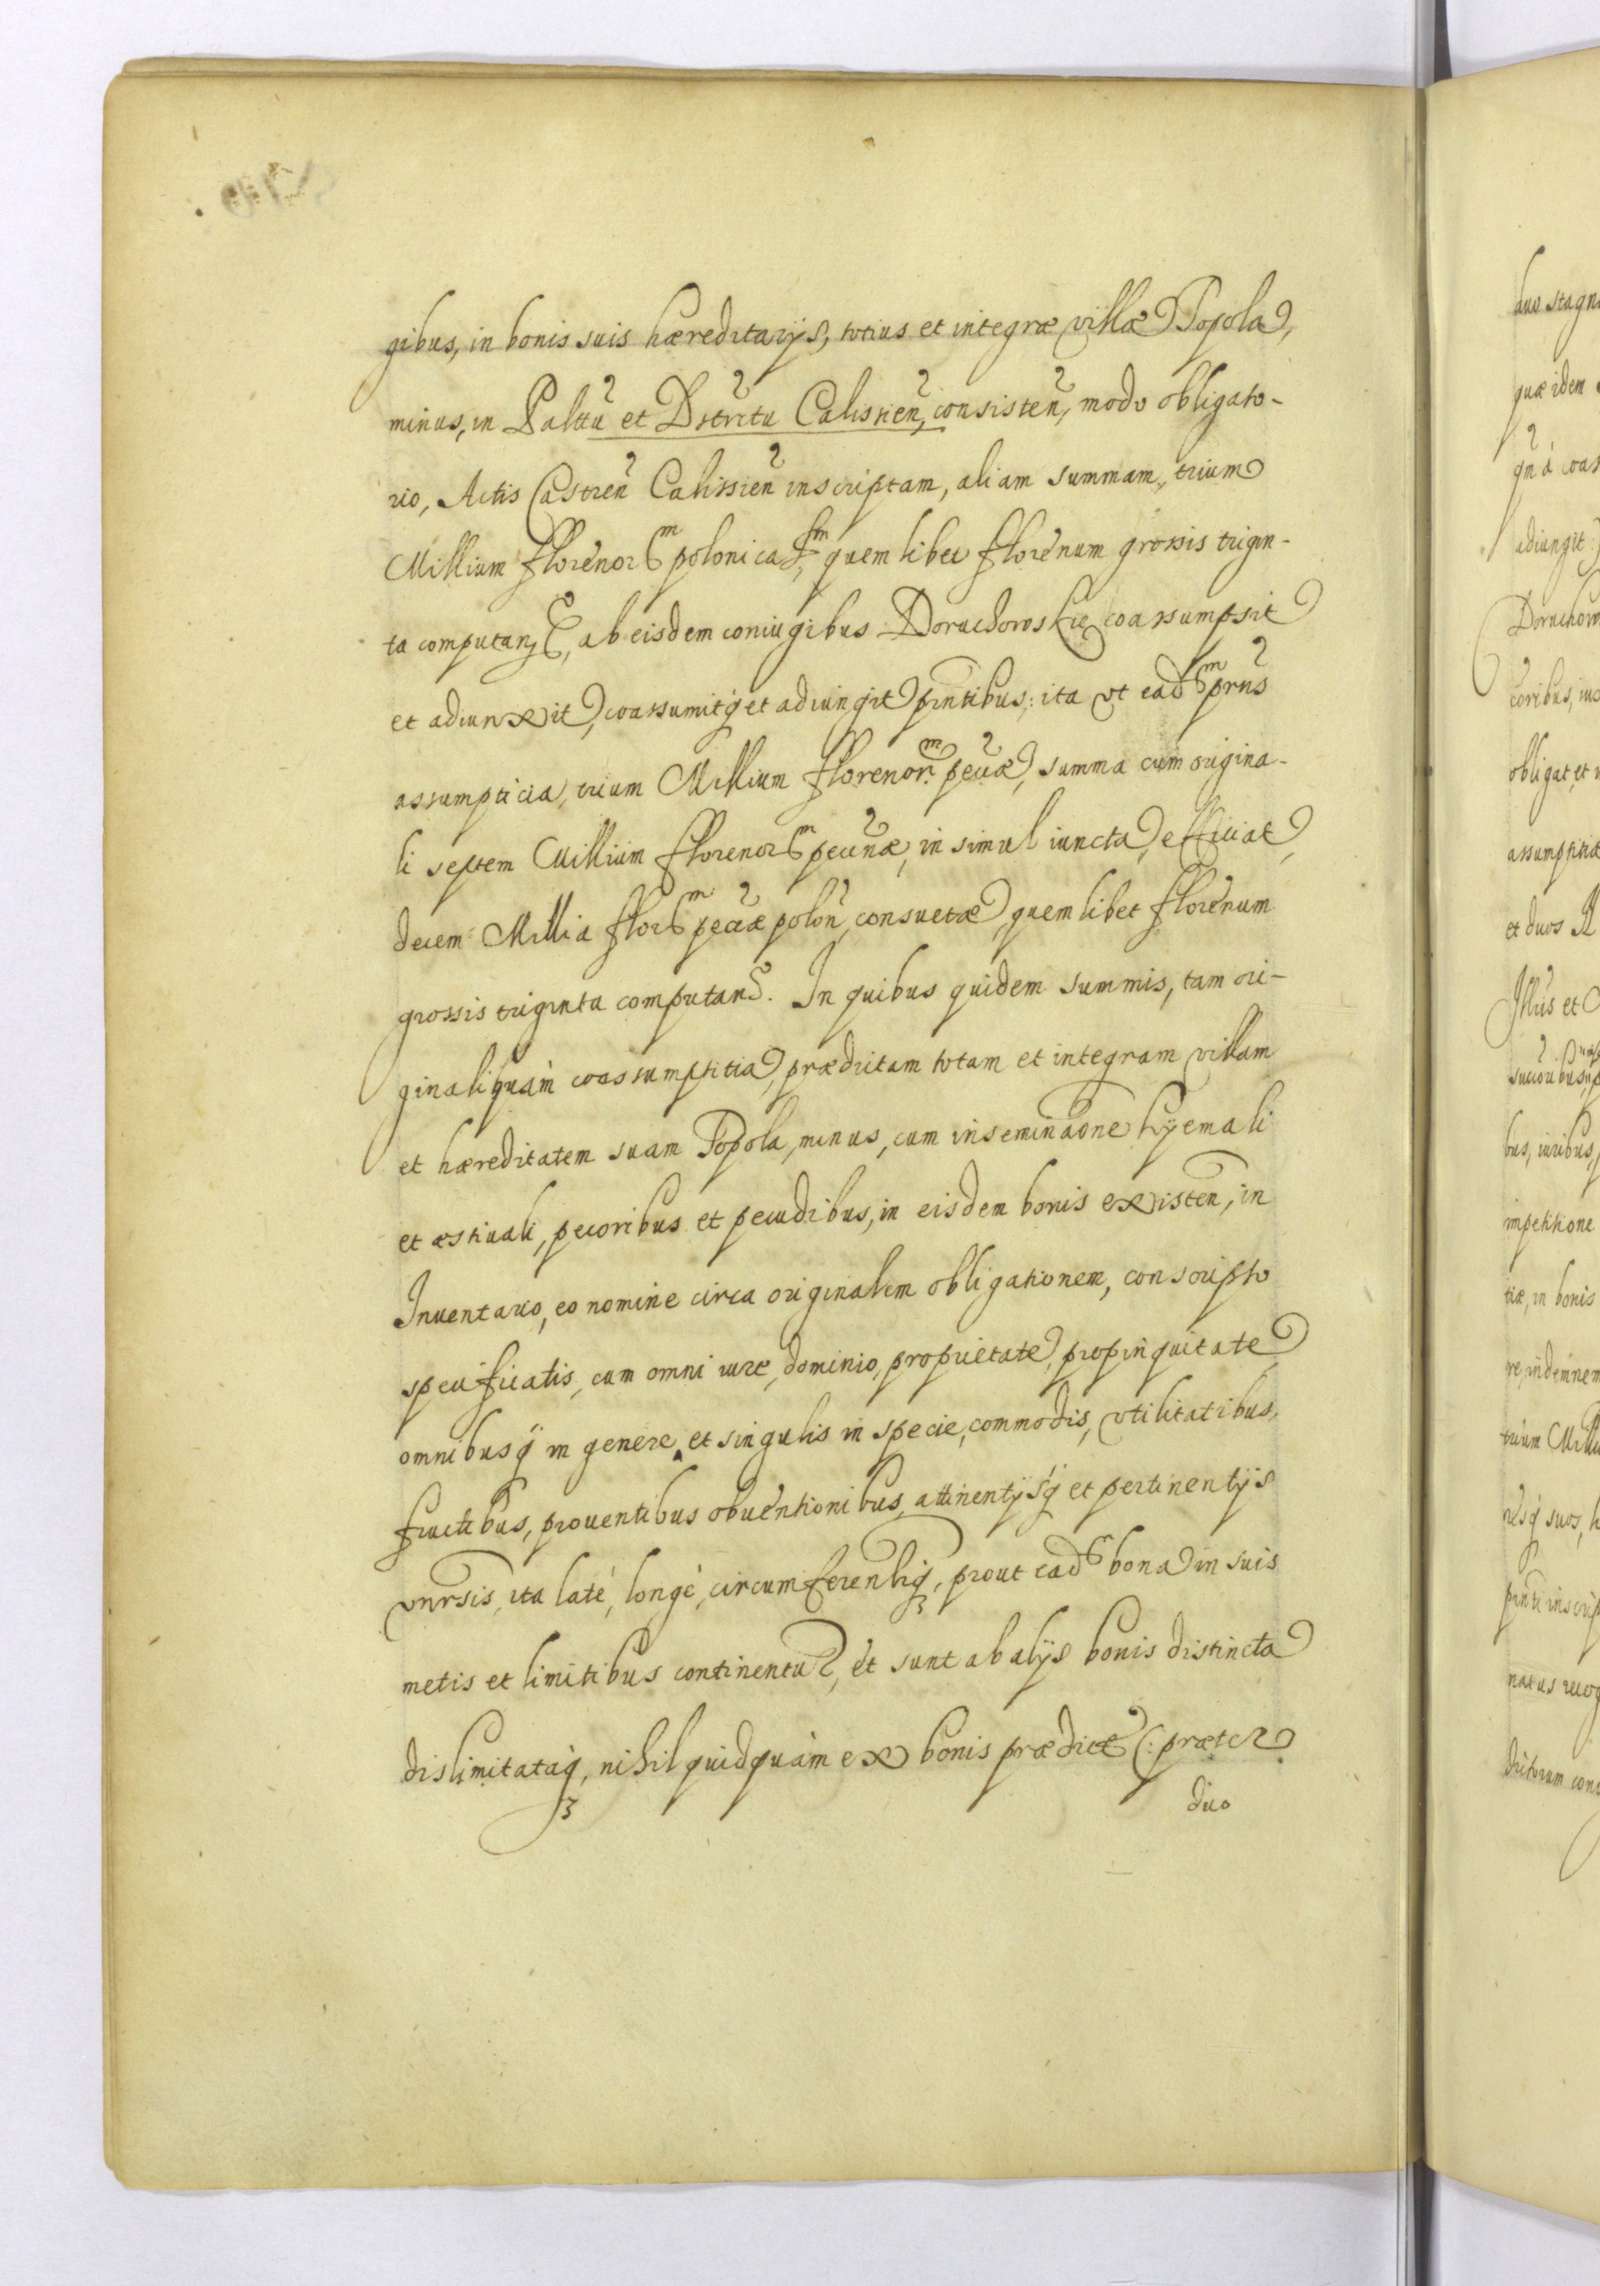 gibus, in bonis suis hæreditarijs, totius et integræ villæ Popola,
minus, in Palttu et Dstrictu Calissien, consisten, modo obligato-
rio, Actis Castren Calissien inscriptam, aliam summam, trium
Millium florenor polonica, quemlibet florenum grossis trigin-
ta computan, ab eisdem coniugibus Doruchowskie coassumpsit
et adiunxit, coassumitq et adiungit pntibus, ita vt ead prns
assumpticia, trium Millium florenor pecuæ, summa cum origina-
li septem Millium florenor pecunæ, in simul iuncta, efficiat,
decem Millia flor pecuæ polon consuetæ, quemlibet florenum
grossis triginta computan. In quibus quidem summis, tam ori-
ginali quam coassumptitia, prædictam totam et integram villam
et hæreditatem suam Popola, minus, cum inseminaone hyemali
et æstiuali, pecoribus et pecudibus, in eisdem bonis existen, in
Inuentario, eo nomine circa originalem obligationem, conscripto
specificatis, cum omni iure, dominio, proprietate, propinquitate
omnibusq in genere et singulis in specie, commodis, vtilitatibus,
fructibus, prouentibus obuentionibus, attinentijsq et pertinentijs
vnrsis, ita latè, longè, circumferentiq, prout ead bona in suis
metis et limitibus continentur, et sunt ab alijs bonis distincta
dislimitataq, nihil quidquàm ex bonis prædict (: præter
duo
duo stagn
quæ idem
adiungit
Doruchow
coribus, in
obligat, et
assumptitia
et duos
Illus et
bus, iuribus,
impetitione
tiæ, in bonis
re, indemnem
trium Mill
resq suos, h
pnti inscrip
natus recog
dictorum con